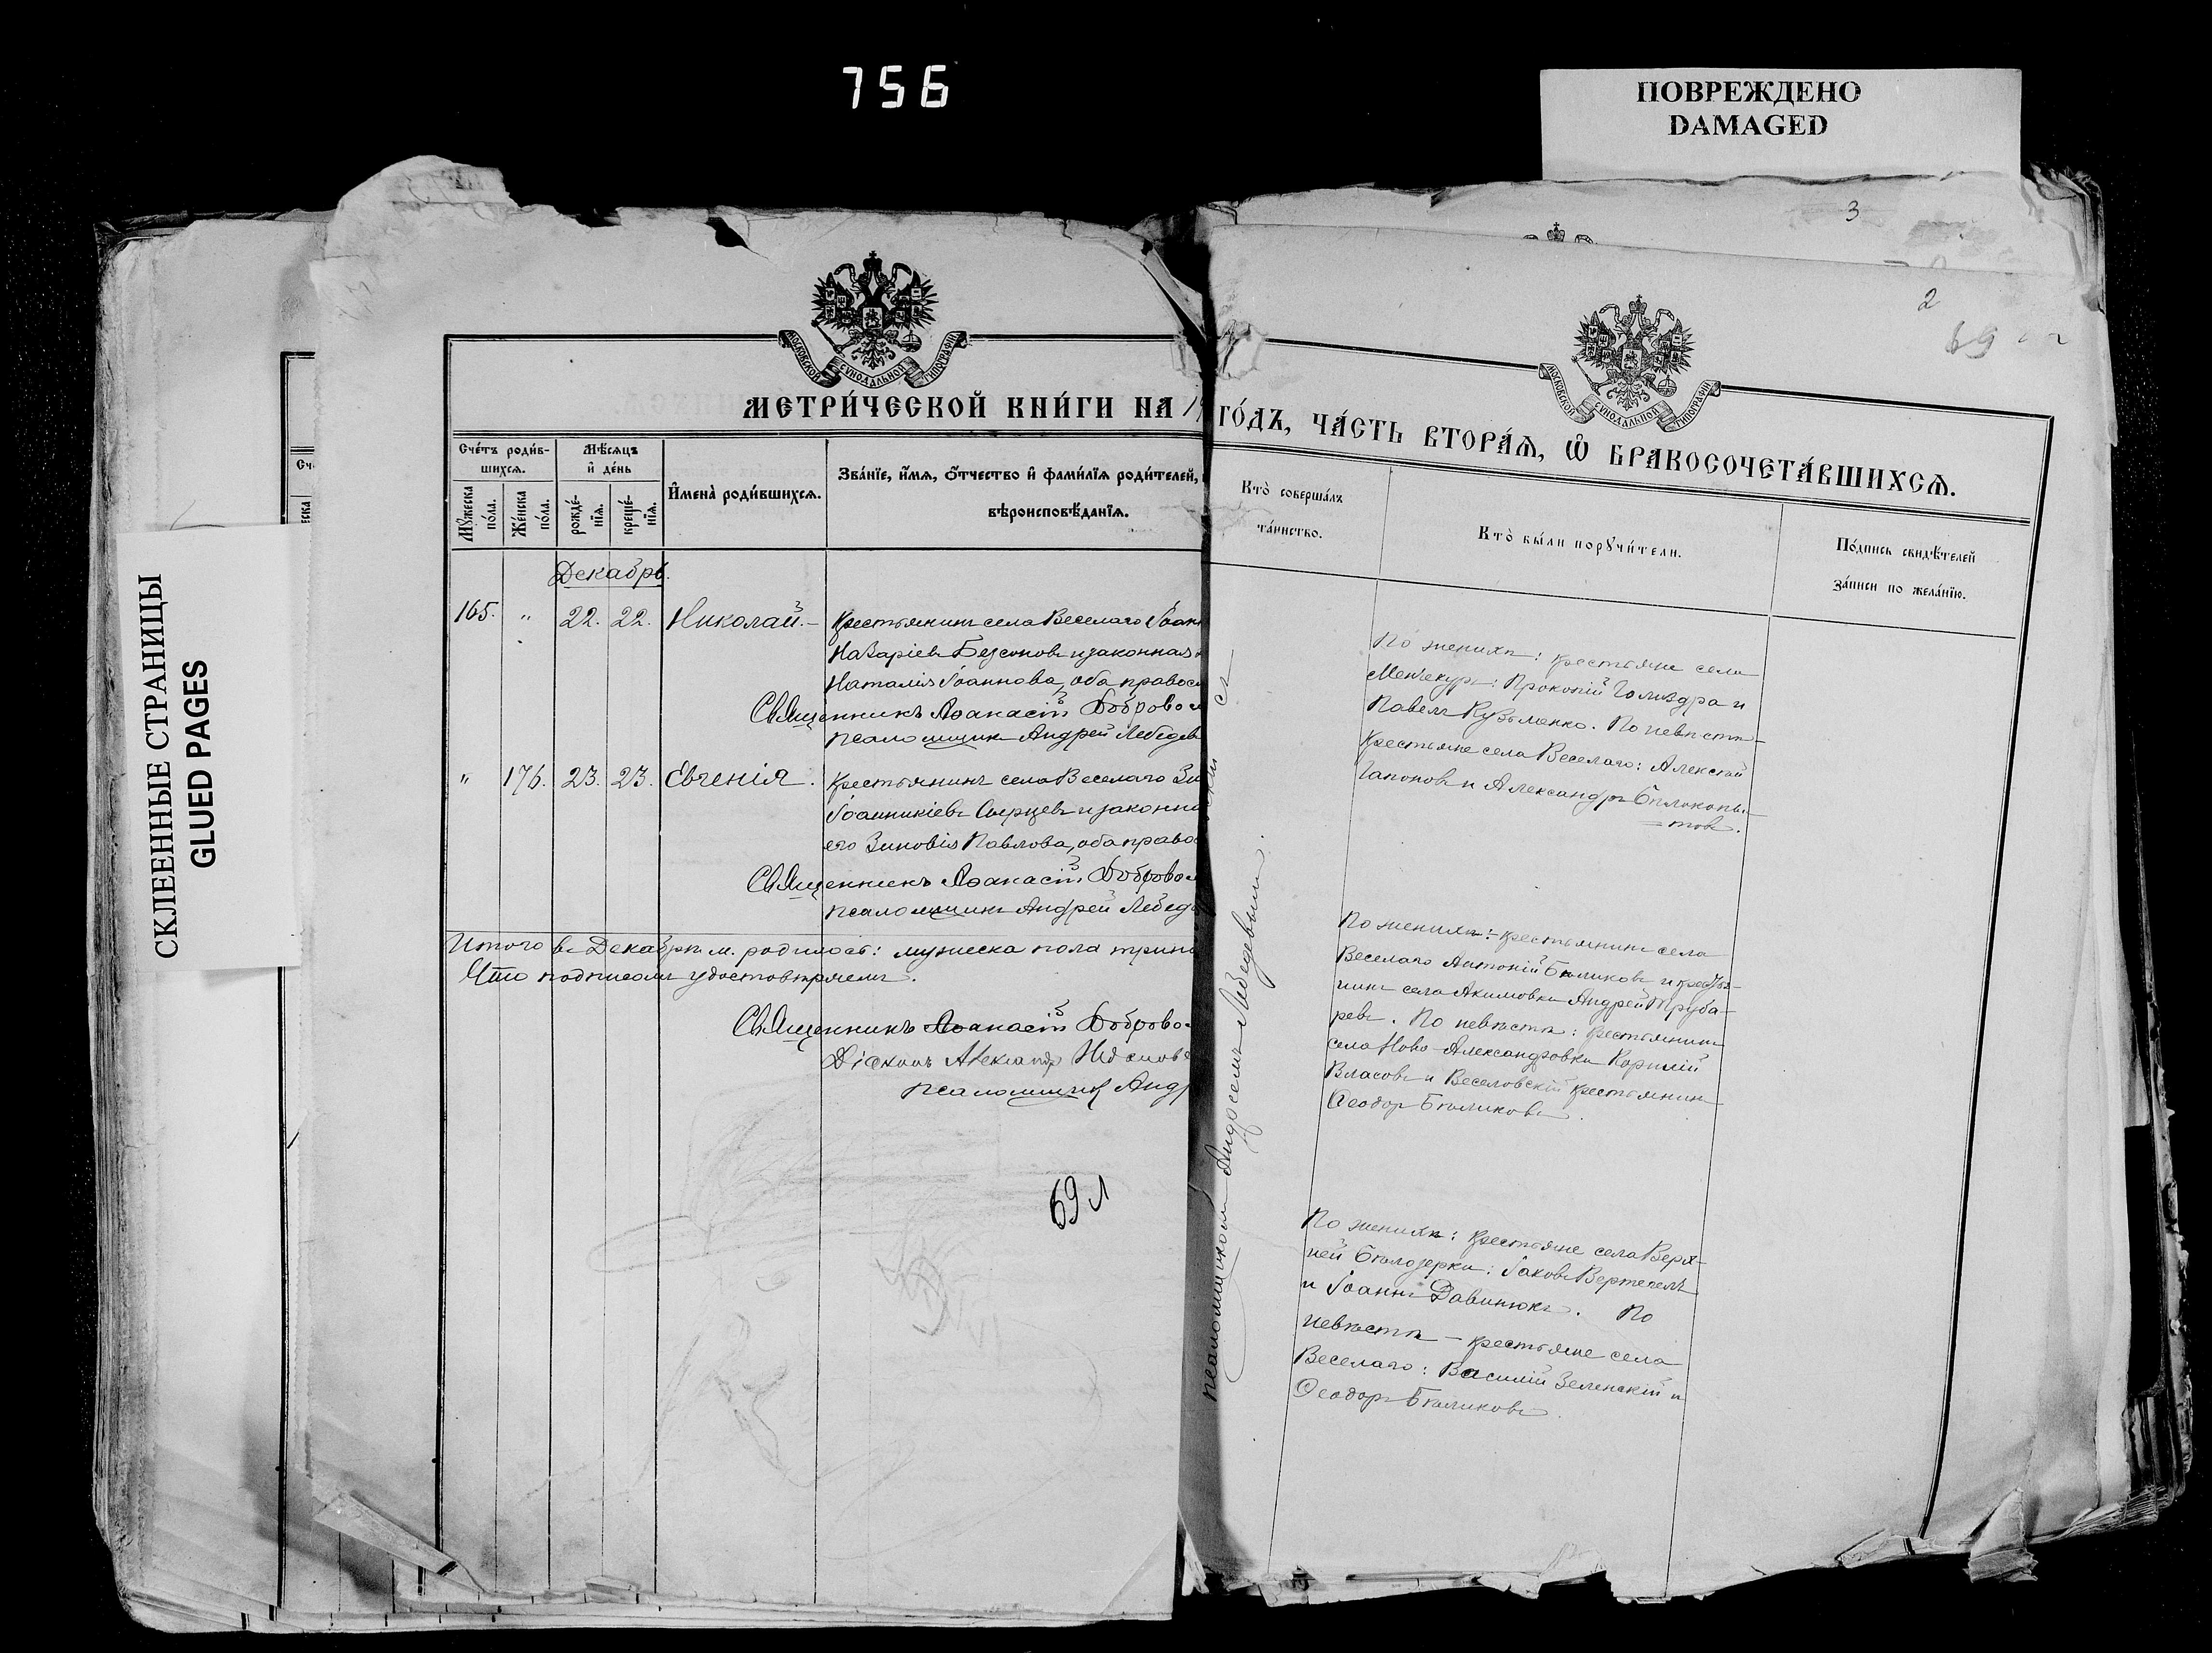 756
ПОВРЕЖДЕНО
DAMAGED
СКЛЕЕННЫЕ СТРАНИЦЫ
GLUED PAGES
МОСКОВСКОЙ СѴНОДАЛЬНОЙ ТИПОГРАФІИ
МЕТРИ́ЧЕСКОЙ КНИ́ГИ НА 19
Сче́тъ роди́в-
шихсѧ.
Мѣ́сѧцъ
и҆ де́нь
Мꙋ́жеска
по́ла.
Же́нска
по́ла.
рожде́-
нїѧ.
креще́-
нїѧ.
И҆мена̀ роди́вшихсѧ.
Зва́нїе, и҆́мѧ, ѻ҆́тчество и҆ фамилі́ѧ роди́телей,
вѣроисповѣ́данїѧ.
Декабрь.
165. " 22. 22. Николай. – Крестьянинъ села Веселаго Іоан
Назаріевъ Безсоновъ и законная
Наталія Іоаннова, оба правосл
Священникъ Аѳанасій Доброво
Псаломщикъ Андрей Лебедев
" 176. 23. 23. Евгенія. Крестьянинъ села Веселаго Зи
Іоанникіевъ Сырцевъ и законна
его Зиновія Павлова, оба правос
Священникъ Аѳанасій Доброво
Псаломщикъ Андрей Лебед
Итого въ Декабрѣ м. родилось: мужеска пола трина
Что подписомъ удостовѣряемъ.
Священникъ Аѳанасій Доброво
Діаконъ Александръ
Псаломщикъ Андр
69 л
3
2
69
МОСКОВСКОЙ СѴНОДАЛЬНОЙ ТИПОГРАФІИ
ГО́ДЪ, ЧА́СТЬ ВТОРА́Ѧ, Ѽ БРАКОСОЧЕТА́ВШИХСѦ.
Кто̀ соверша́лъ
та́инство.
Кто̀ бы́ли порꙋчи́тели.
По́дпись свидѣ́телей
за́писи по жела́нїю.
По женихѣ: крестьяне села
Менчекуръ: Прокопій Голиздра и
Павелъ Кузьменко. По невѣстѣ –
крестьяне села Веселаго: Алексѣй
Гапоновъ и Александръ Бѣлокопы-
товъ.
По женихѣ: – крестьянинъ села
Веселаго Антоній Бѣликовъ и крестья-
нинъ села Акимовки Андрей Труба-
ревъ. По невѣстѣ: крестьянинъ
села Ново-Александровки Корнилій
Власовъ и Веселовскій крестьянинъ
Ѳеодоръ Бѣликовъ.
По женихѣ: крестьяне села Верх-
ней Бѣлозерки: Іаковъ Вертепелъ
и Іоаннъ Давинюкъ. По
невѣстѣ – крестьяне села
Веселаго: Василій Зеленскій и
Ѳеодоръ Бѣликовъ.
псаломщикомъ Андреемъ Лебедевымъ.